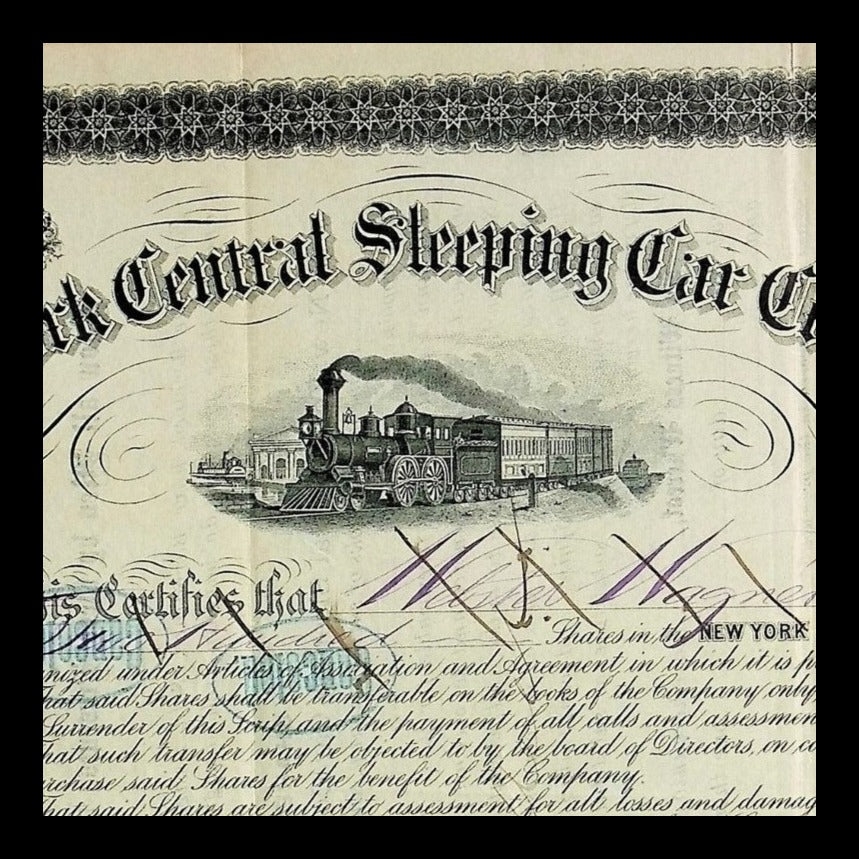 rk Central Sleeping Car Co
is Certifies that Webster Wagner
Hundred Shares in the NEW YORK
nized under Articles of Association and Agreement in which it is p
hat said Shares shall be transferable on the books of the Company only
Surrender of this Scrip, and the payment of all calls and assessmen
hat such transfer may be objected to by the board of Directors, on co
rchase said Shares for the benefit of the Company.
That said Shares are subject to assessment for all losses and damag